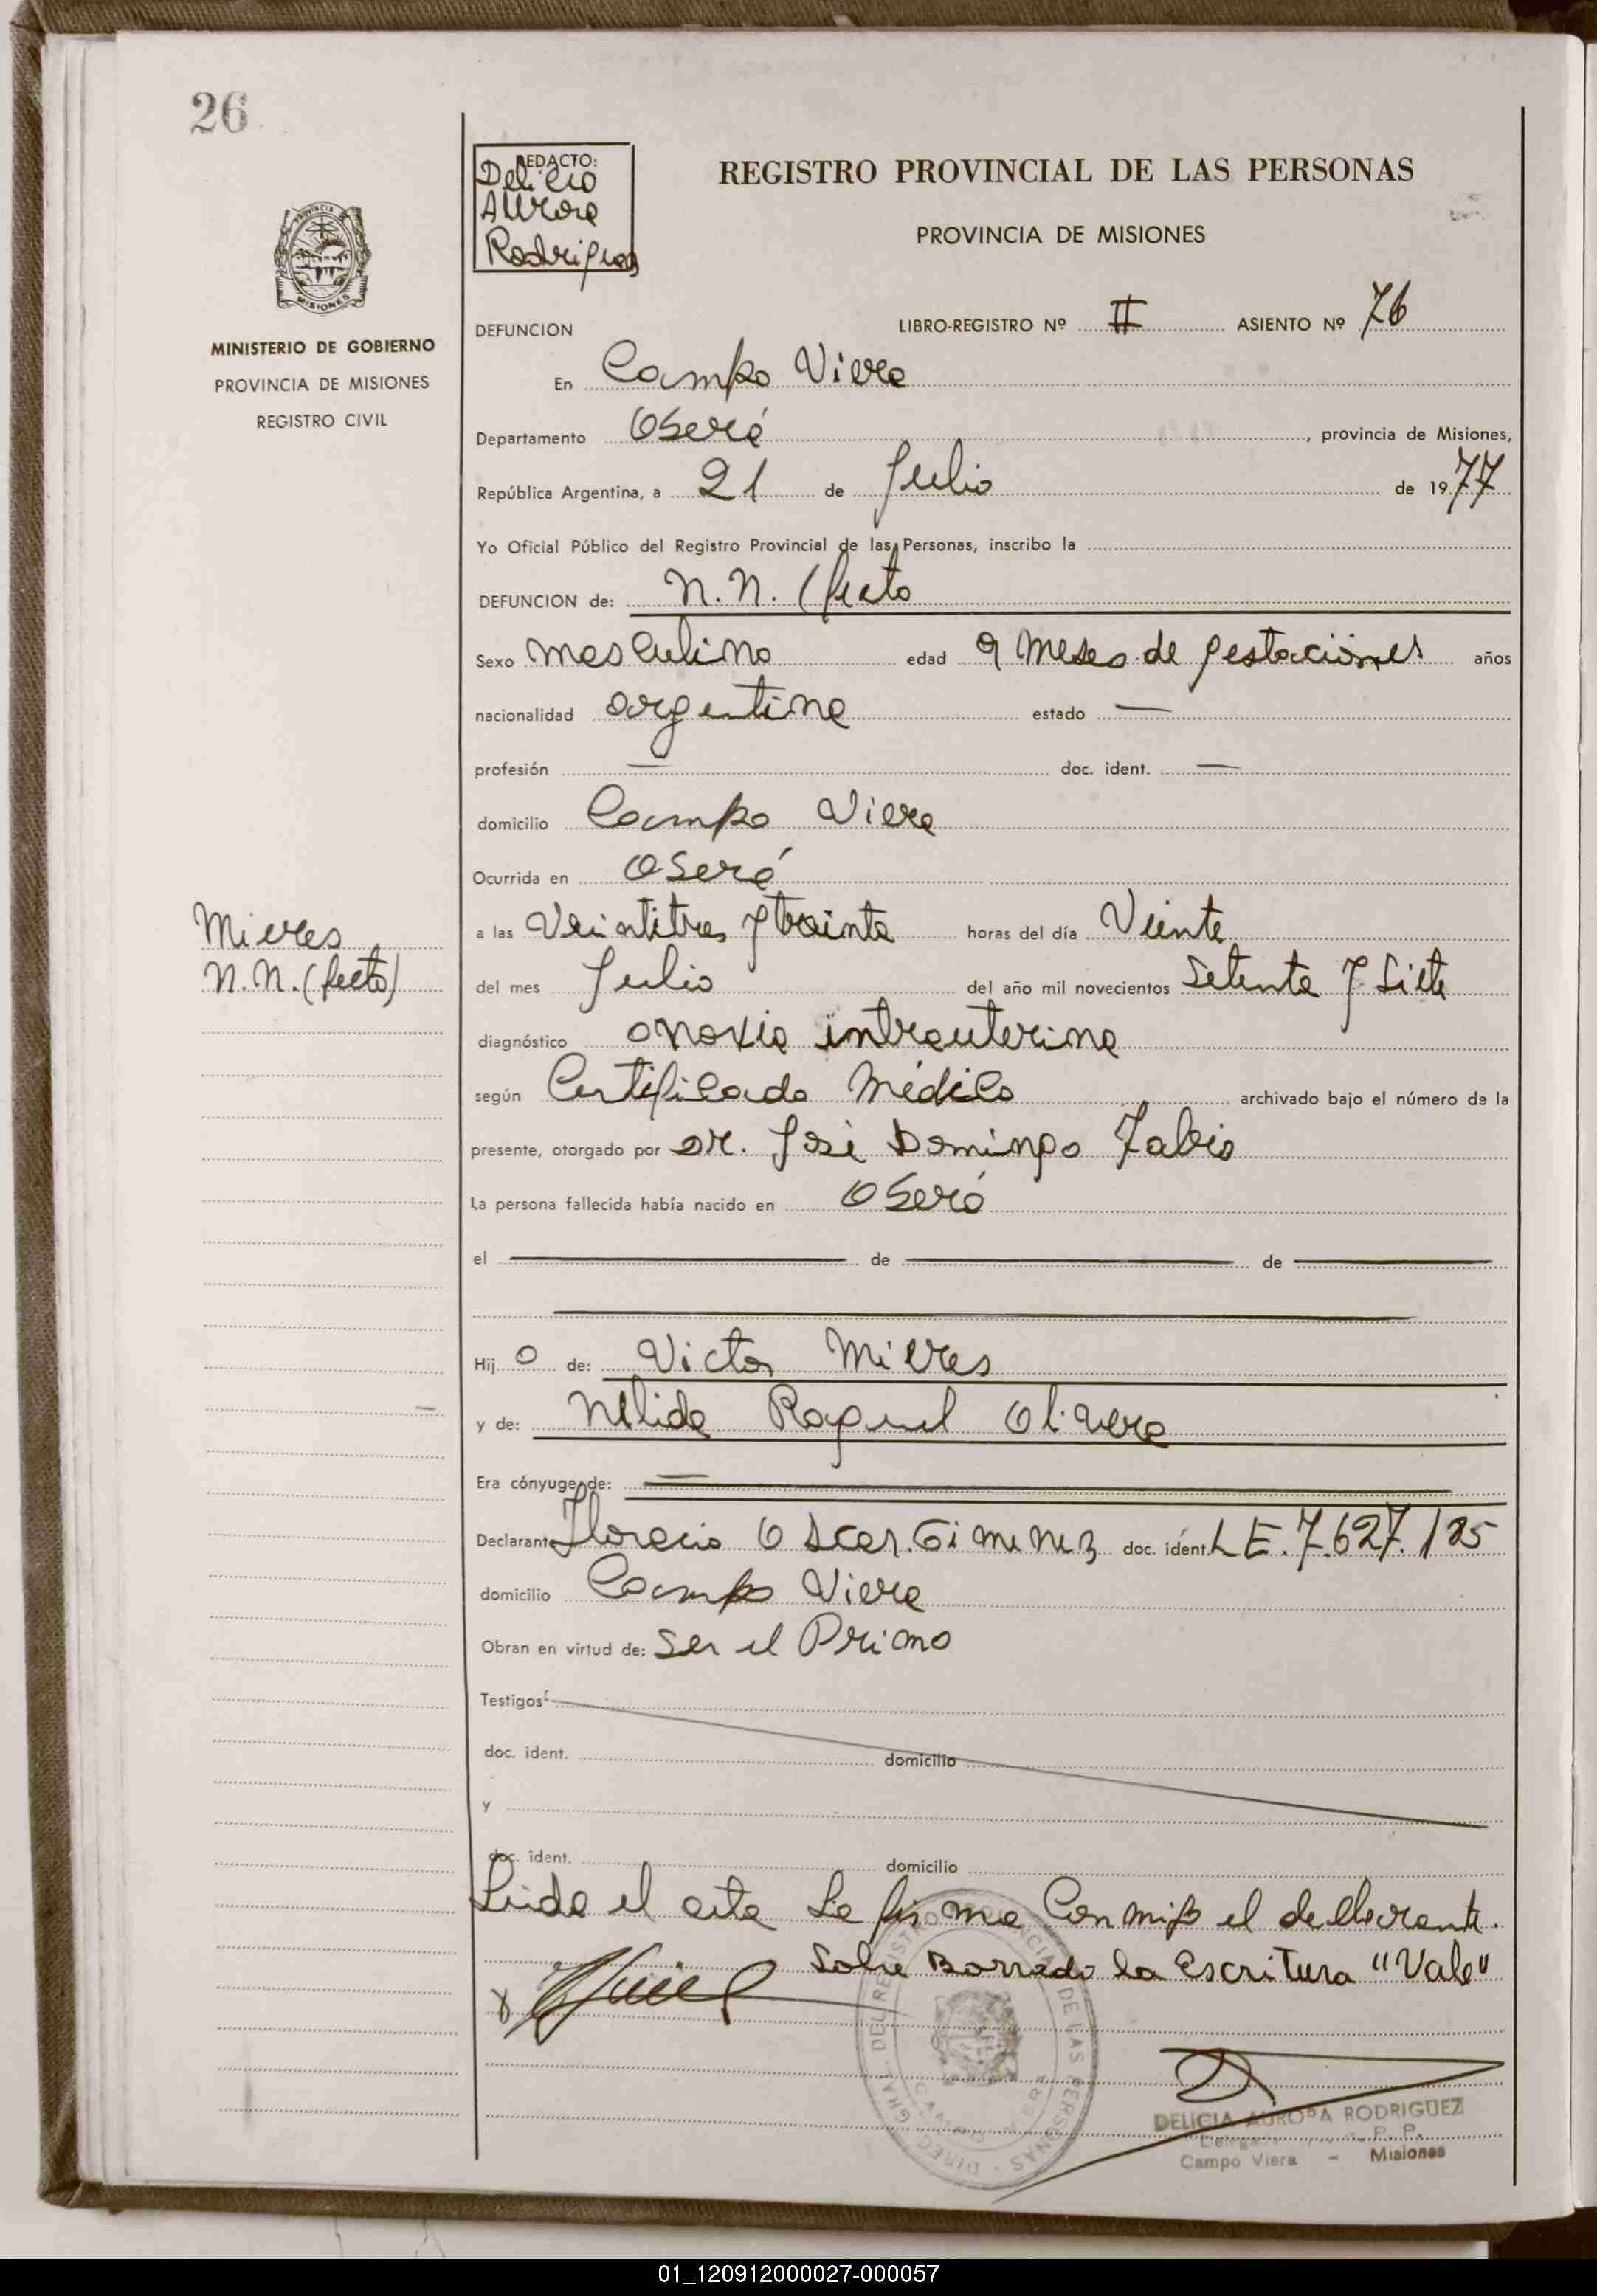 26
REDACTO:
Delicia
Aurora
Rodriguez
REGISTRO PROVINCIAL DE LAS PERSONAS
PROVINCIA DE MISIONES
MISIONES
MINISTERIO DE GOBIERNO
PROVINCIA DE MISIONES
REGISTRO CIVIL
DEFUNCION LIBRO-REGISTRO Nº II ASIENTO Nº 76
En Campo Viera
Departamento Oberá, provincia de Misiones,
República Argentina, a 21 de Julio de 1977
Yo Oficial Público del Registro Provincial de las Personas, inscribo la
DEFUNCION de: N.N. (feto
Sexo masculino edad 9 meses de gestaciones años
nacionalidad argentina estado —
profesión — doc. ident. —
domicilio Campo Viera
Ocurrida en Oberá
a las Veintitres y treinta horas del día Veinte
Mieres
N.N. (feto)
del mes Julio del año mil novecientos Setenta y Siete
diagnóstico anoxia intrauterina
según Certificado Médico archivado bajo el número de la
presente, otorgado por Dr. José Domingo Fabio
La persona fallecida había nacido en Oberá
el — de — de —
Hijo de: Victor Mieres
y de: Nelida Raquel Olivera
Era cónyuge de: —
Declarante Horacio Oscar Gimenez doc. ident. L E. 7.627.125
domicilio Campo Viera
Obran en virtud de: Ser el Primo
Testigos:
doc. ident. domicilio
y
doc. ident. domicilio
Leida el acta La firma Conmigo el declarante.
Sobre Borrado la Escritura "Vale"
DELICIA AURORA RODRIGUEZ
Campo Viera - Misiones
01_120912000027-000057